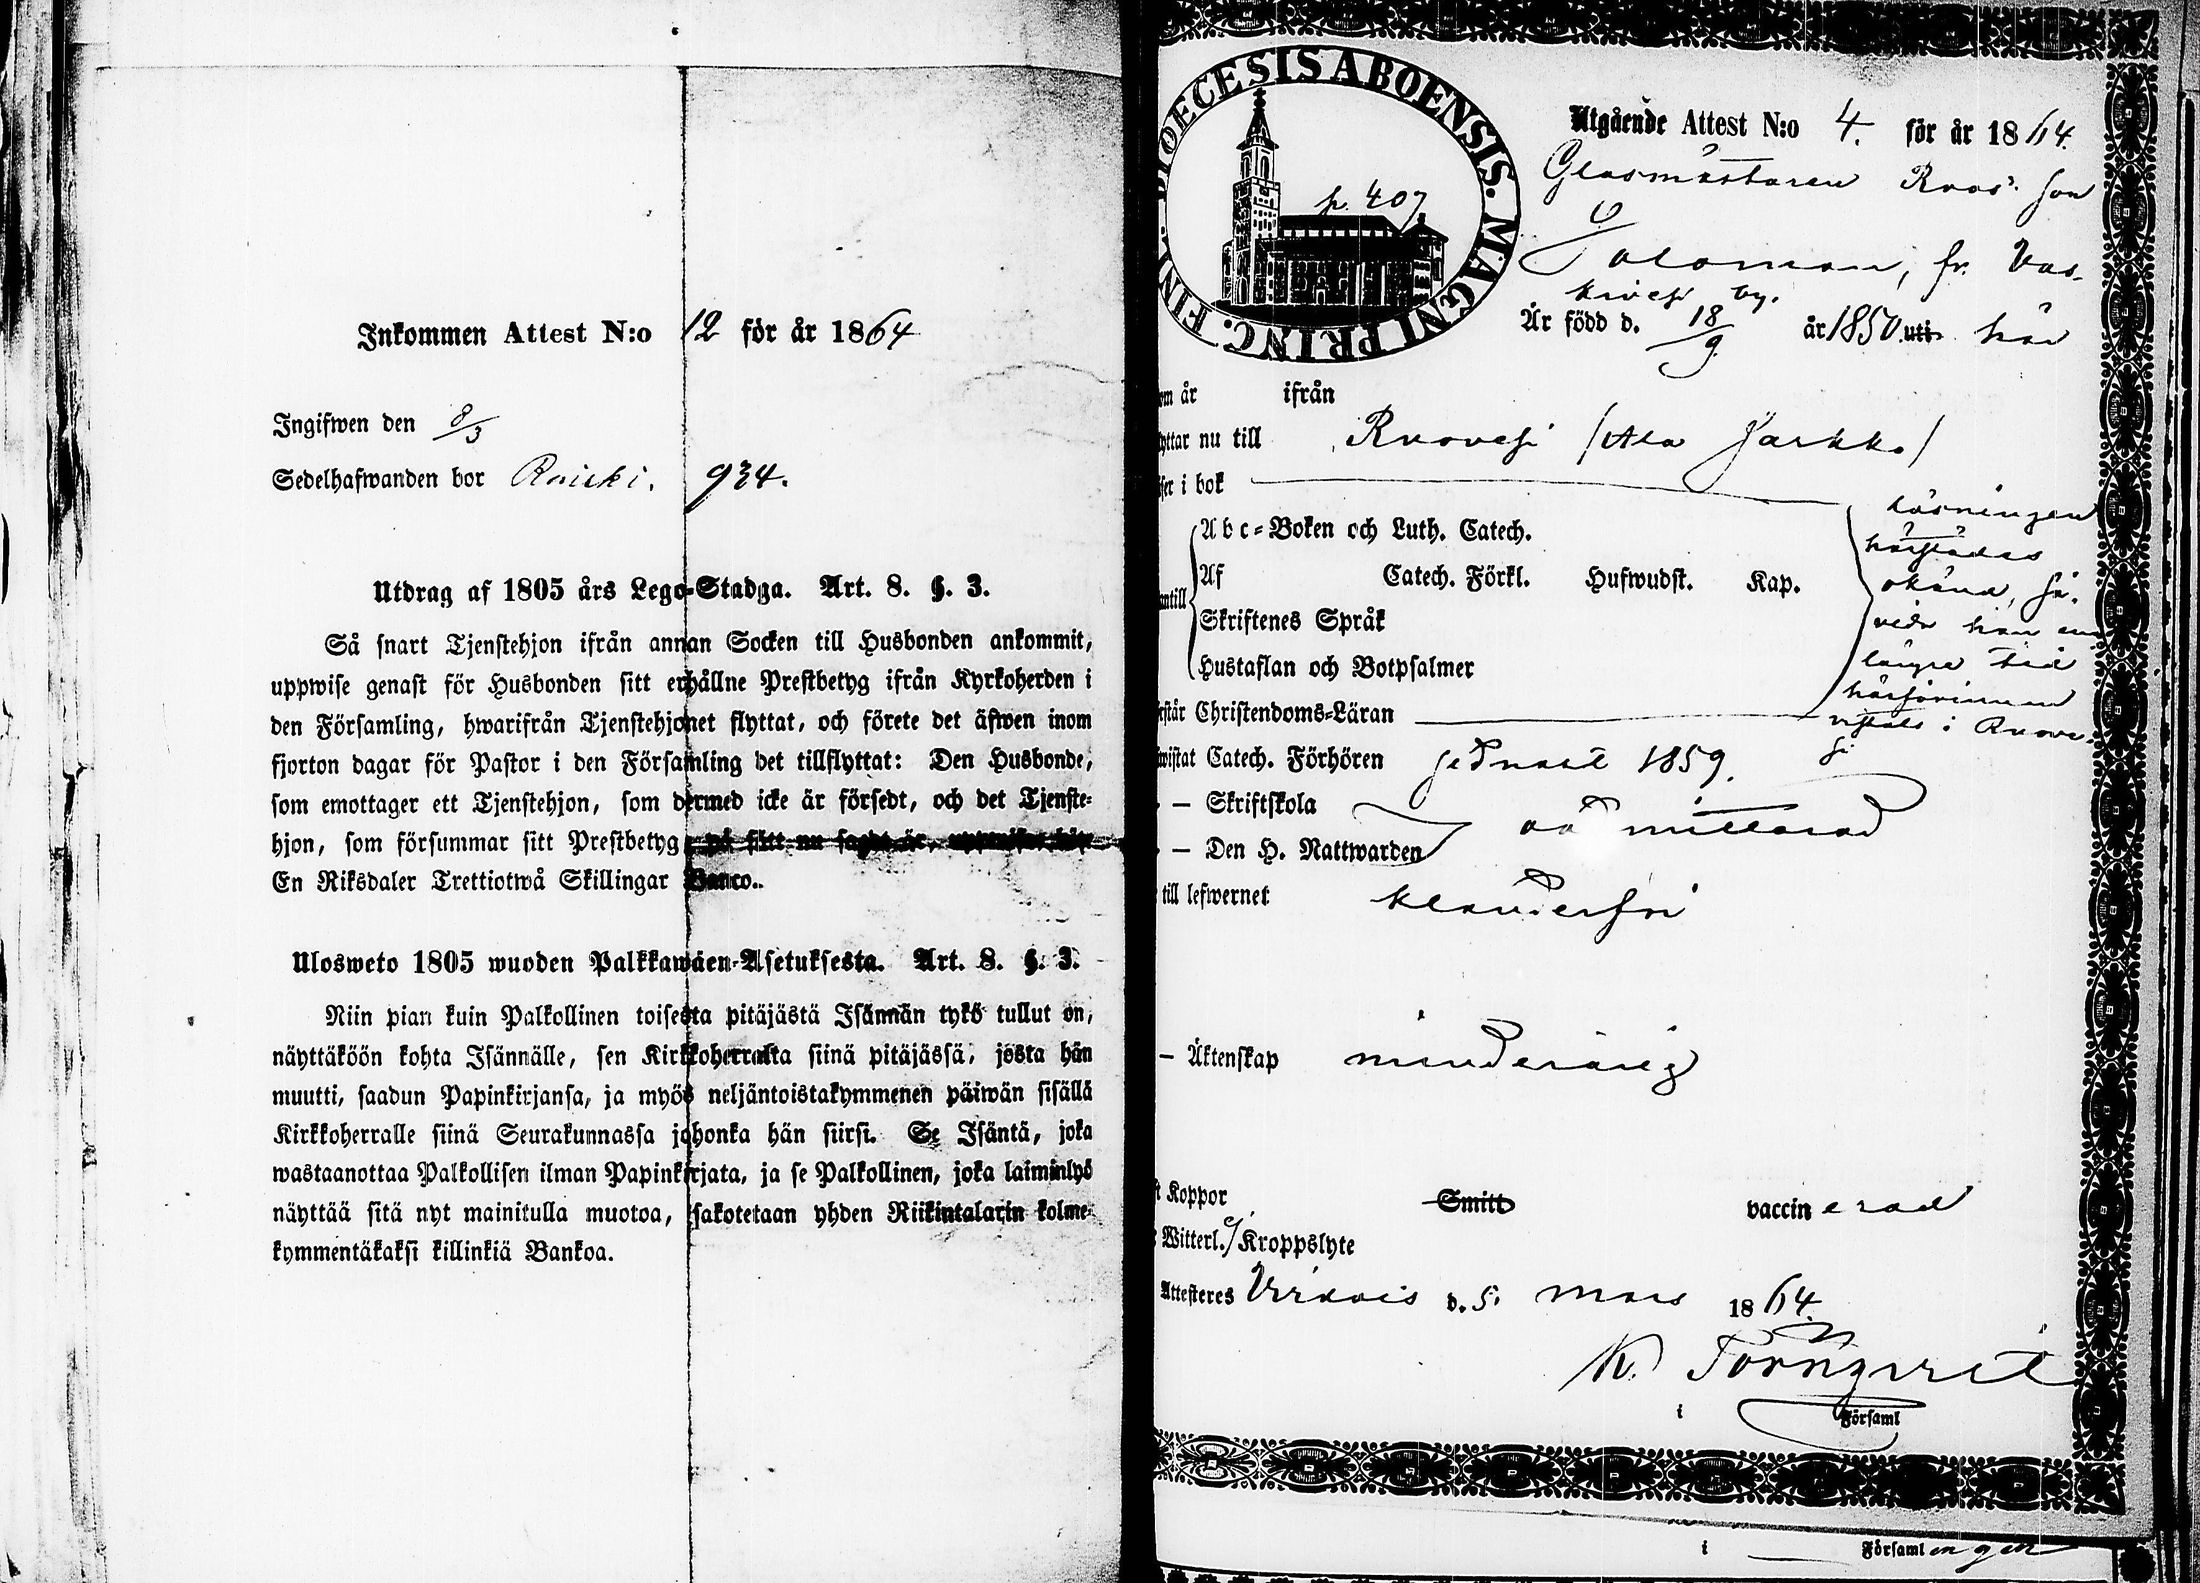 Inkommen Attest N:o 12 för år 1864
Ingifwen den 8/3
Sedelhafwanden bor 934.
Utdrag af 1805 års Lego-Stadga. Art. 8. §. 3.
Så snart Tjenstehjon ifrån annan Socken till Husbonden ankommit,
uppwise genast för Husbonden sitt erhållne Prestbetyg ifrån Kyrkoherden i
den Församling, hwarifrån Tjenstehjonet flyttat, och förete det äfwen inom
fjorton dagar för Pastor i den Församling det tillflyttat: Den Husbonde,
som emottager ett Tjenstehjon, som dermed icke är försedt, och det Tjenste-
hjon, som försummar sitt Prestbetyg, på sätt nu sagdt är, uppwisa, böte
En Riksdaler Trettiotwå Skillingar Banco.
Ulosweto 1805 wuoden Palkkawäen-Asetuksesta. Art. 8. §. 3.
Niin pian kuin Palkollinen toisesta pitäjästä Isännän tykö tullut on,
näyttäköön kohta Isännälle, sen Kirkkoherralta siinä pitäjässä, josta hän
muutti, saadun Papinkirjansa, ja myös neljäntoistakymmenen päiwän sisällä
Kirkkoherralle siinä Seurakunnassa johonka hän siirsi. Se Isäntä, joka
wastaanottaa Palkollisen ilman Papinkirjata, ja se Palkollinen, joka laiminlyö
näyttää sitä nyt mainitulla muotoa, sakotetaan yhden Riikintalarin kolme-
kymmentäkaksi killinkiä Bankoa.
DIOECESIS ABOENSIS. MAGNI PRINC. FINL.
p. 407
Utgående Attest N:o 4. för år 1864.
Glasmästaren Roos' son
Salomon, fr. Vas-
kivesi by.
Är född d. 18/9 år 1850 uti här
om år ifrån
yttar nu till Ruovesi (Ala Jäskko)
ser i bok
A b c-Boken och Luth. Catech.
Af Catech. Förkl. Hufwudst. Kap.
antill
Skriftenes Språk
Hustaflan och Botpsalmer
läsningen
härstädes
okänd, så-
vida han en
längre tid
härförinnan
vistats i Ruove-
si
rstår Christendoms-Läran
wistat Catech. Förhören sednast 1859.
- — Skriftskola
- — Den H. Nattwarden
oadmitterad
till lefwernet klanderfri
— Äktenskap minderårig
t Koppor Smitt vaccinerad
Witterl. ej Kroppslyte
Attesteres Virdois d. 5 mars 1864.
K. Törnqvist
i Församl
i Församlingen